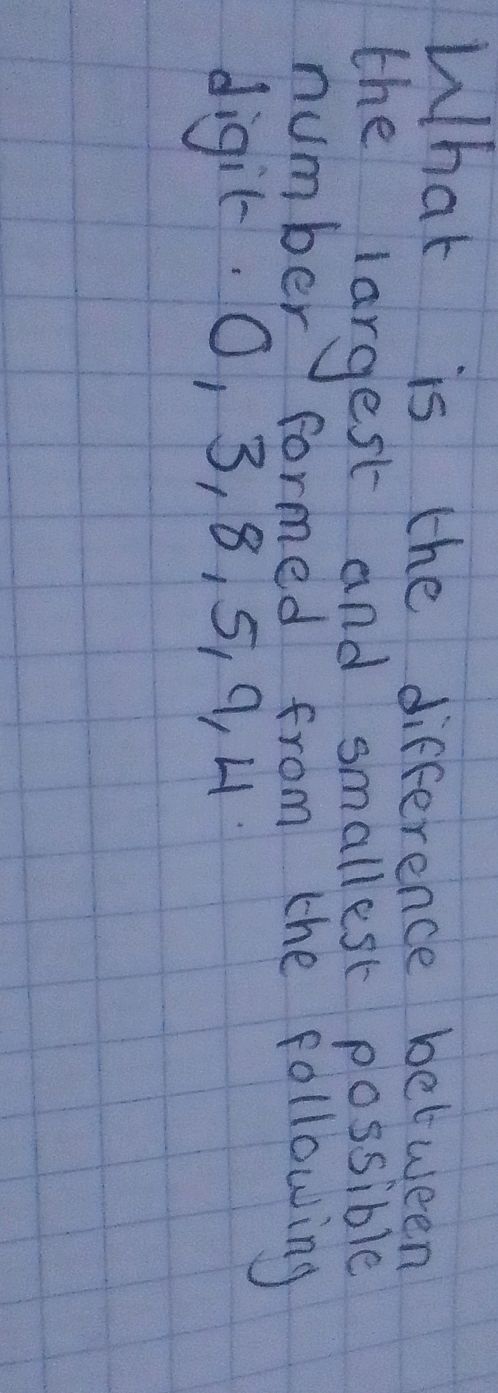 What is the difference between
the largest and smallest possible
number formed from the following
digit. 0, 3, 8, 5, 9, 4.